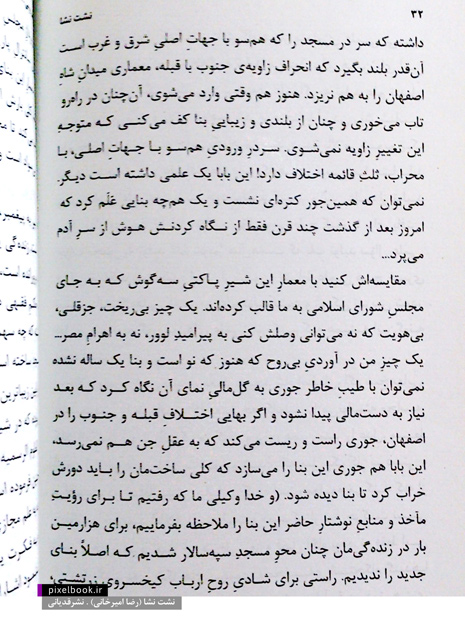 ۳۲
نشت نشا
داشته که سر در مسجد را که هم‌سو با جهاتِ اصلیِ شرق و غرب است
آن‌قدر بلند بگیرد که انحراف زاویه‌ی جنوب با قبله، معماری میدانِ شاهِ
اصفهان را به هم نریزد. هنوز هم وقتی وارد می‌شوی، آن‌چنان در راهرو
تاب می‌خوری و چنان از بلندی و زیباییِ بنا کف می‌کنی کـه متوجهِ
این تغییرِ زاویه نمی‌شوی. سـردرِ ورودیِ هم‌سو بـا جـهاتِ اصلی، بـا
محراب، ثلثِ قائمه اختلاف دارد! این بابا یک علمی داشته است دیگر.
نمی‌توان که همین‌جور کتره‌ای نشست و یک هم‌چه بنایی عَلَم کرد که
امروز بعد از گذشت چند قرن فقط از نـگاه کردنـش هـوش از سـرِ آدم
می‌برد...
مقایسه‌اش کنید با معمارِ این شیرِ پاکتیِ سـه‌گوش کـه بـه جـای
مجلسِ شورای اسلامی به ما قالب کرده‌اند. یک چیزِ بی‌ریخت، جزقلی،
بی‌هویت که نه می‌توانی وصلش کنی به پیرامیدِ لوور، نه به اهرامِ مصر...
یک چیزِ من در آوردیِ بی‌روح که هنوز که نو است و بنا یک ساله نشده
نمی‌توان با طیبِ خاطر جوری به گل‌مالیِ نمای آن نگاه کـرد کـه بعد
نیاز به دست‌مالی پیدا نشود و اگر بهایی اختـلافِ قبلـه و جنـوب را در
اصفهان، جوری راست و ریست می‌کند که به عقلِ جن هـم نمی‌رسد،
این بابا هم جوری این بنا را می‌سازد که کلی ساخت‌مان را بـاید دورش
خراب کرد تا بنا دیده شود. (و خدا وکیلی ما که رفتیم تا بـرای رؤیـتِ
مآخذ و منابعِ نوشتارِ حاضر این بنا را ملاحظه بفرماییم، برای هزارمین
بار در زنده‌گی‌مان چنان محوِ مسجدِ سپه‌سالار شدیـم کـه اصـلاً بنای
جدید را ندیدیم. راستی برای شادیِ روحِ اربـاب کیخسـرویِ زرتشتی،
pixelbook.ir
نشت نشا (رضا امیرخانی) . نشرقدیانی